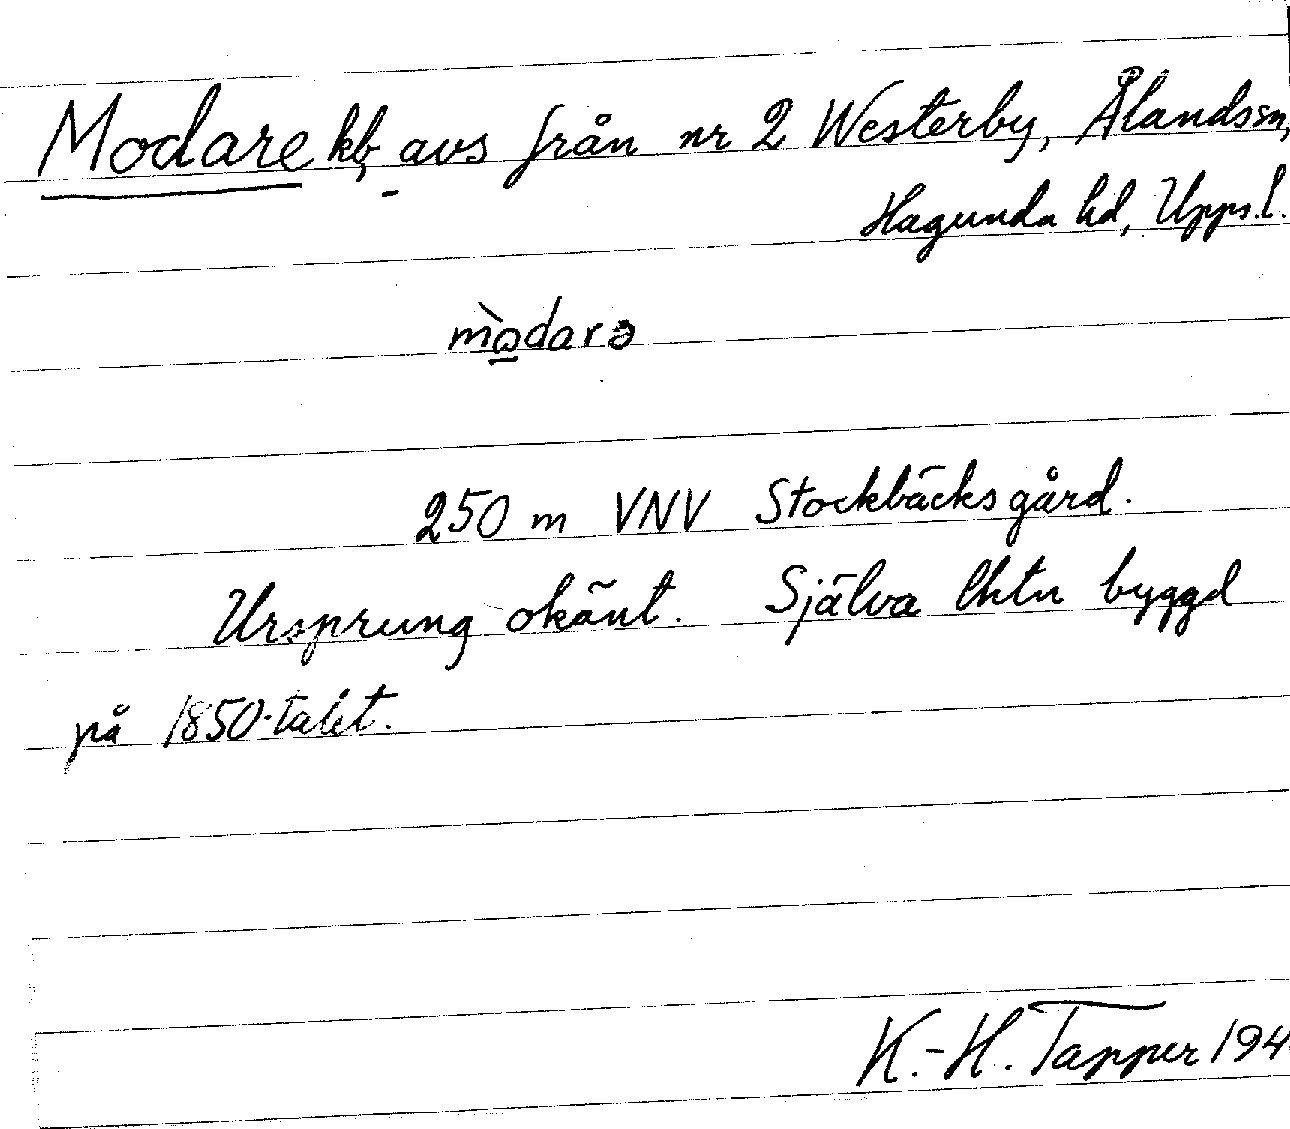 Modare kb, avs från nr 2 Westerby, Ålands sn,
Hagunda hd, Upps. l.
mò̲darə
250 m VNV Stockbäcks gård.
Ursprung okänt. Själva lhtn byggd
på 1850-talet.
K.-H. Tapper 194